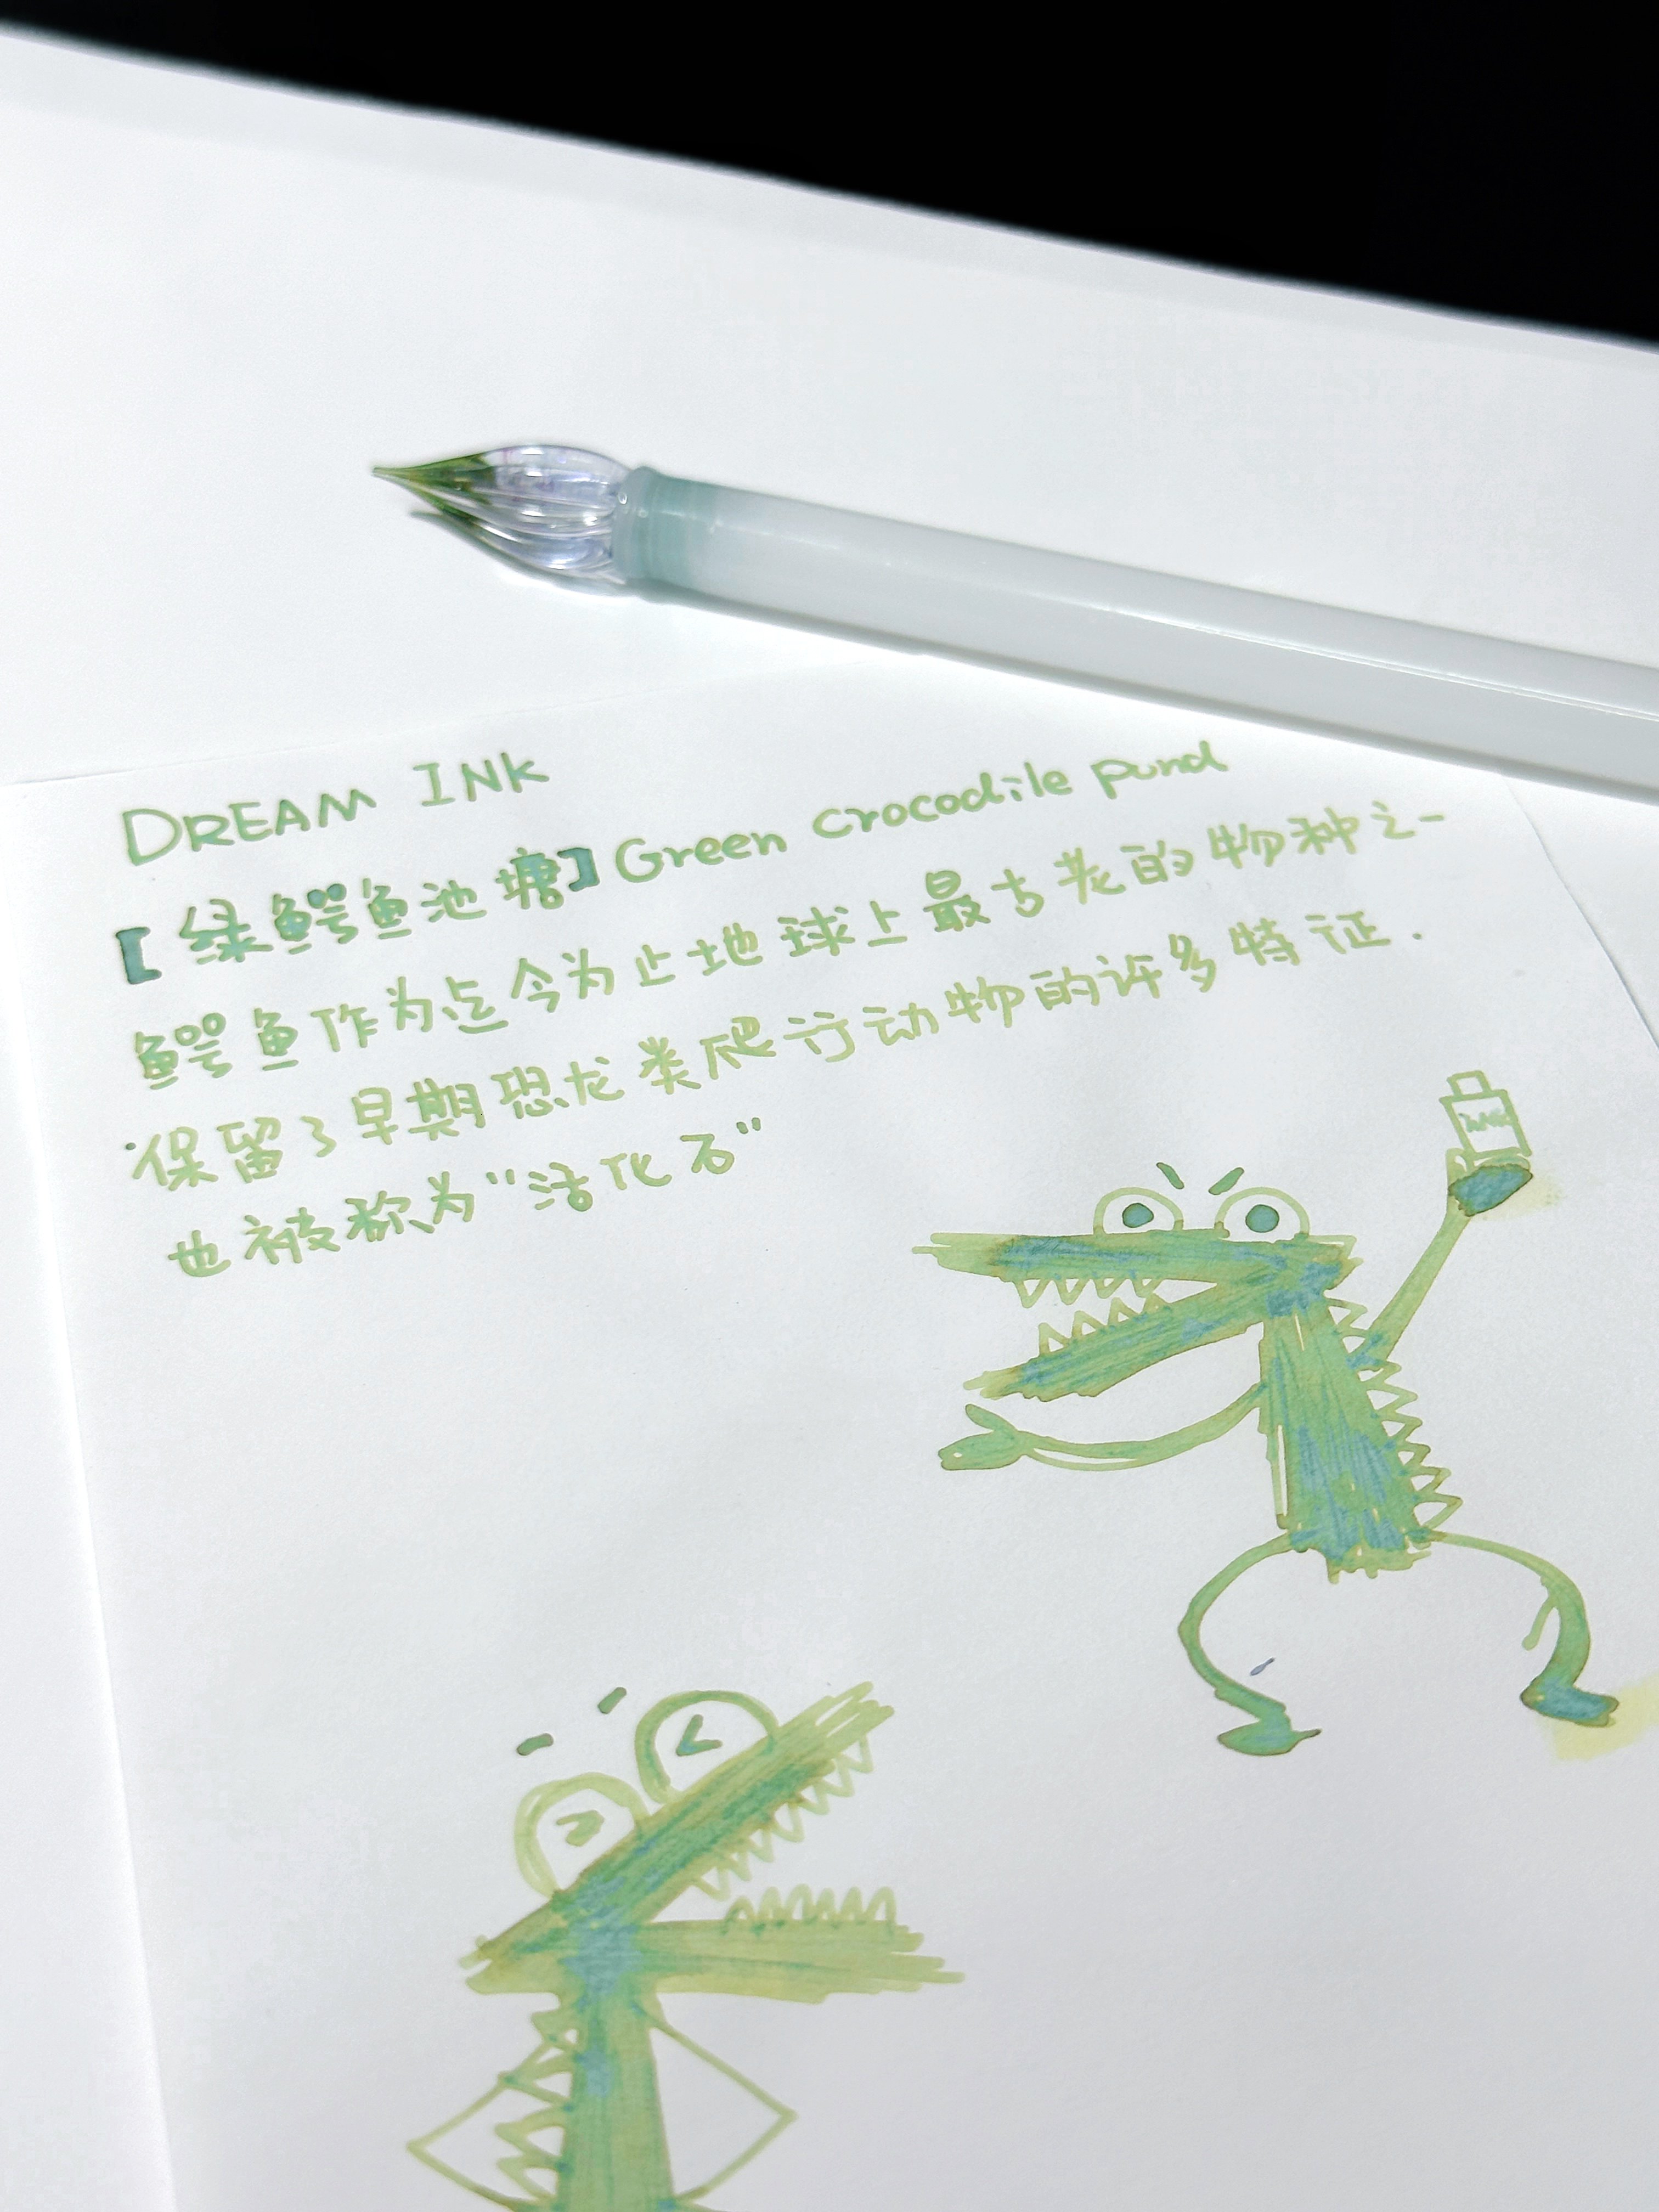 DREAM INK
【绿鳄鱼池塘】Green crocodile pund
鳄鱼作为迄今为止地球上最古老的物种之一
保留了早期恐龙类爬行动物的许多特征.
也被称为"活化石"